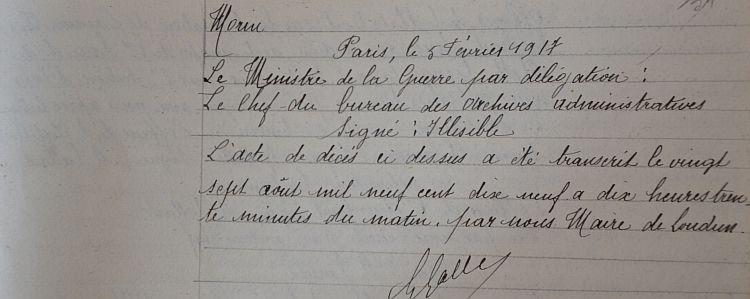 Morin
Paris, le 5 Février 1917
Le Ministre de la Guerre par délégation :
Le Chef du bureau des Archives administratives
Signé : Illisible
L'acte de décès ci dessus a été transcrit le vingt
sept août mil neuf cent dix neuf a dix heures tren-
te minutes du matin. par nous Maire de Loudun.